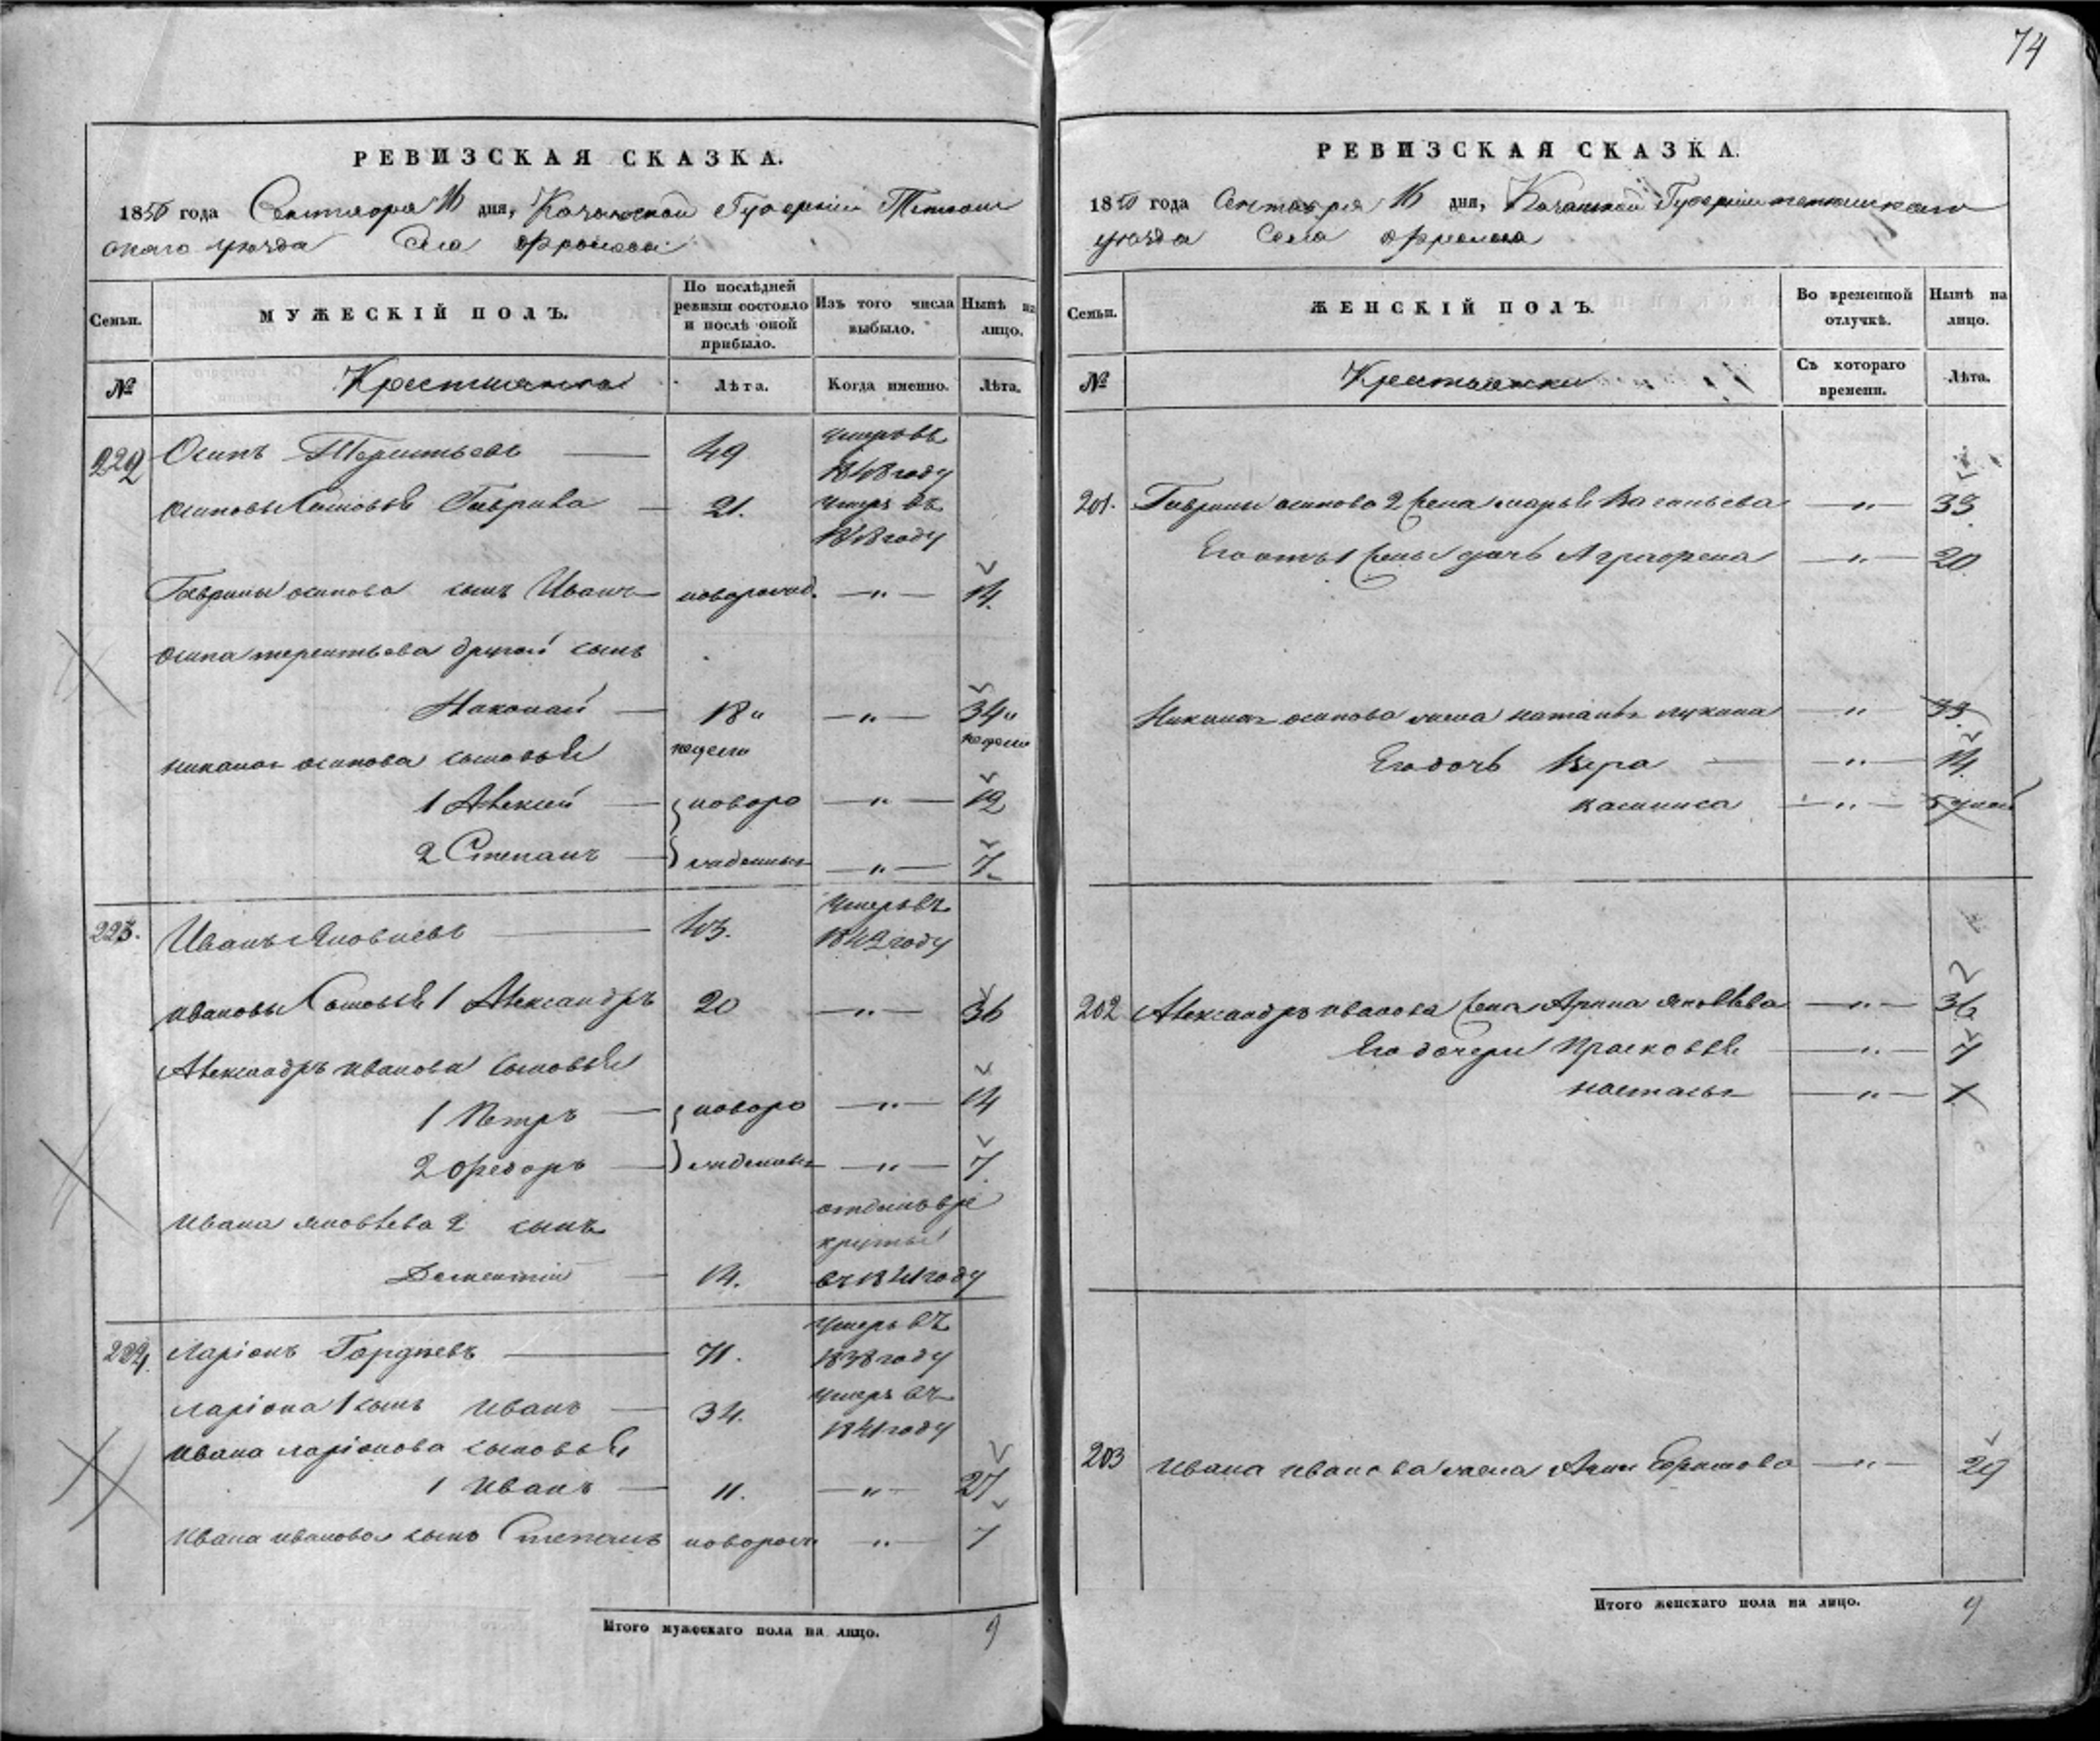 74
РЕВИЗСКАЯ СКАЗКА.
1850 года Сентября 16 дня, Казанской Губернии Тетюш
скаго уезда Села Фролова
Семьи.
МУЖЕСКІЙ ПОЛЪ.
По послѣдней ревизіи состояло и послѣ оной прибыло.
Изъ того числа выбыло.
Нынѣ на лицо.
№
Крестьяне
Лѣта.
Когда именно.
Лѣта.
222 Осипъ Терентьевъ 49 умеръ въ
1848 году
Осиповы Сыновья Гаврила 21. умеръ въ
1848 году
Гаврилы осипова сынъ Иванъ новорожд. — " — 14.
осипа терентьева другой сынъ
18 " — " — 34 "
осипова сыновья недели недели
1 Алексей новоро — " — 12
2 Степанъ жденные — " — 7
223. Иванъ Яковлевъ 43. умеръ въ
1842 году
ивановы Сыновья 1 Александръ 20 — " — 36
Александръ иванова сыновья
1 Петръ новоро — " — 14
2 Федоръ жденные — " — 7.
ивана яковлева 2 сынъ отданъ в ре
круты
Дементий 14. въ 1841 году
224. Ларіонъ Гордеевъ 71. умеръ въ
1838 году
ларіона 1 сынъ иванъ 34. умеръ въ
1841 году
ивана ларіонова сыновья
1 иванъ 11. — " — 27
ивана иванова сынъ Степанъ новорож — " — 7
Итого мужескаго пола на лицо. 9
РЕВИЗСКАЯ СКАЗКА.
1850 года Сентября 16 дня, Казанской Губернии тетюшскаго
уезда Села Фролова
Семьи.
ЖЕНСКІЙ ПОЛЪ.
Во временной отлучкѣ.
Нынѣ на лицо.
№
Крестьянки
Съ котораго времени.
Лѣта.
201. Гаврилы осипова 2 жена марья Васильева — " — 33
Его отъ 1 жены дочь Аграфена — " — 20
осипова жена лукина — " — 33
Его дочь Вера — " — 14
василиса — " —
202 Александръ иванова жена Арина яковлева — " — 36
Его дочери Прасковья — " — 7
настасья — " — 1
203 ивана иванова жена Анна Ефимова — " — 29
Итого женскаго пола на лицо. 9